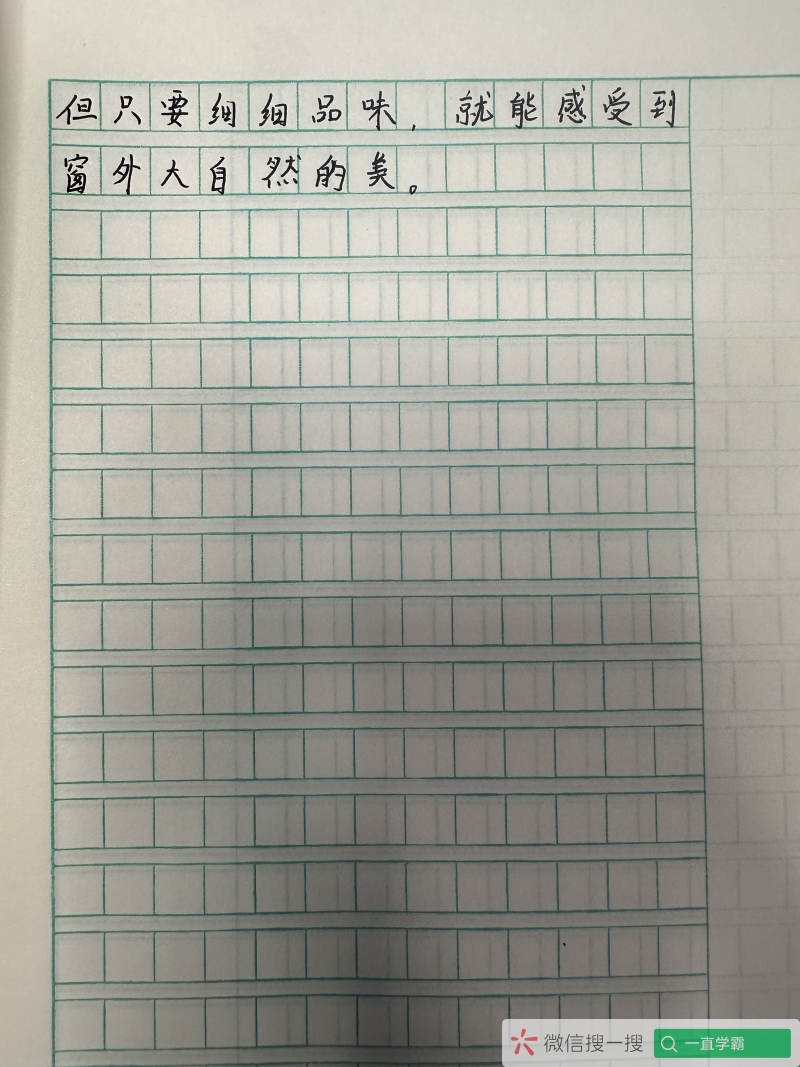 但只要细细品味，就能感受到
窗外大自然的美。
微信搜一搜
一直学霸